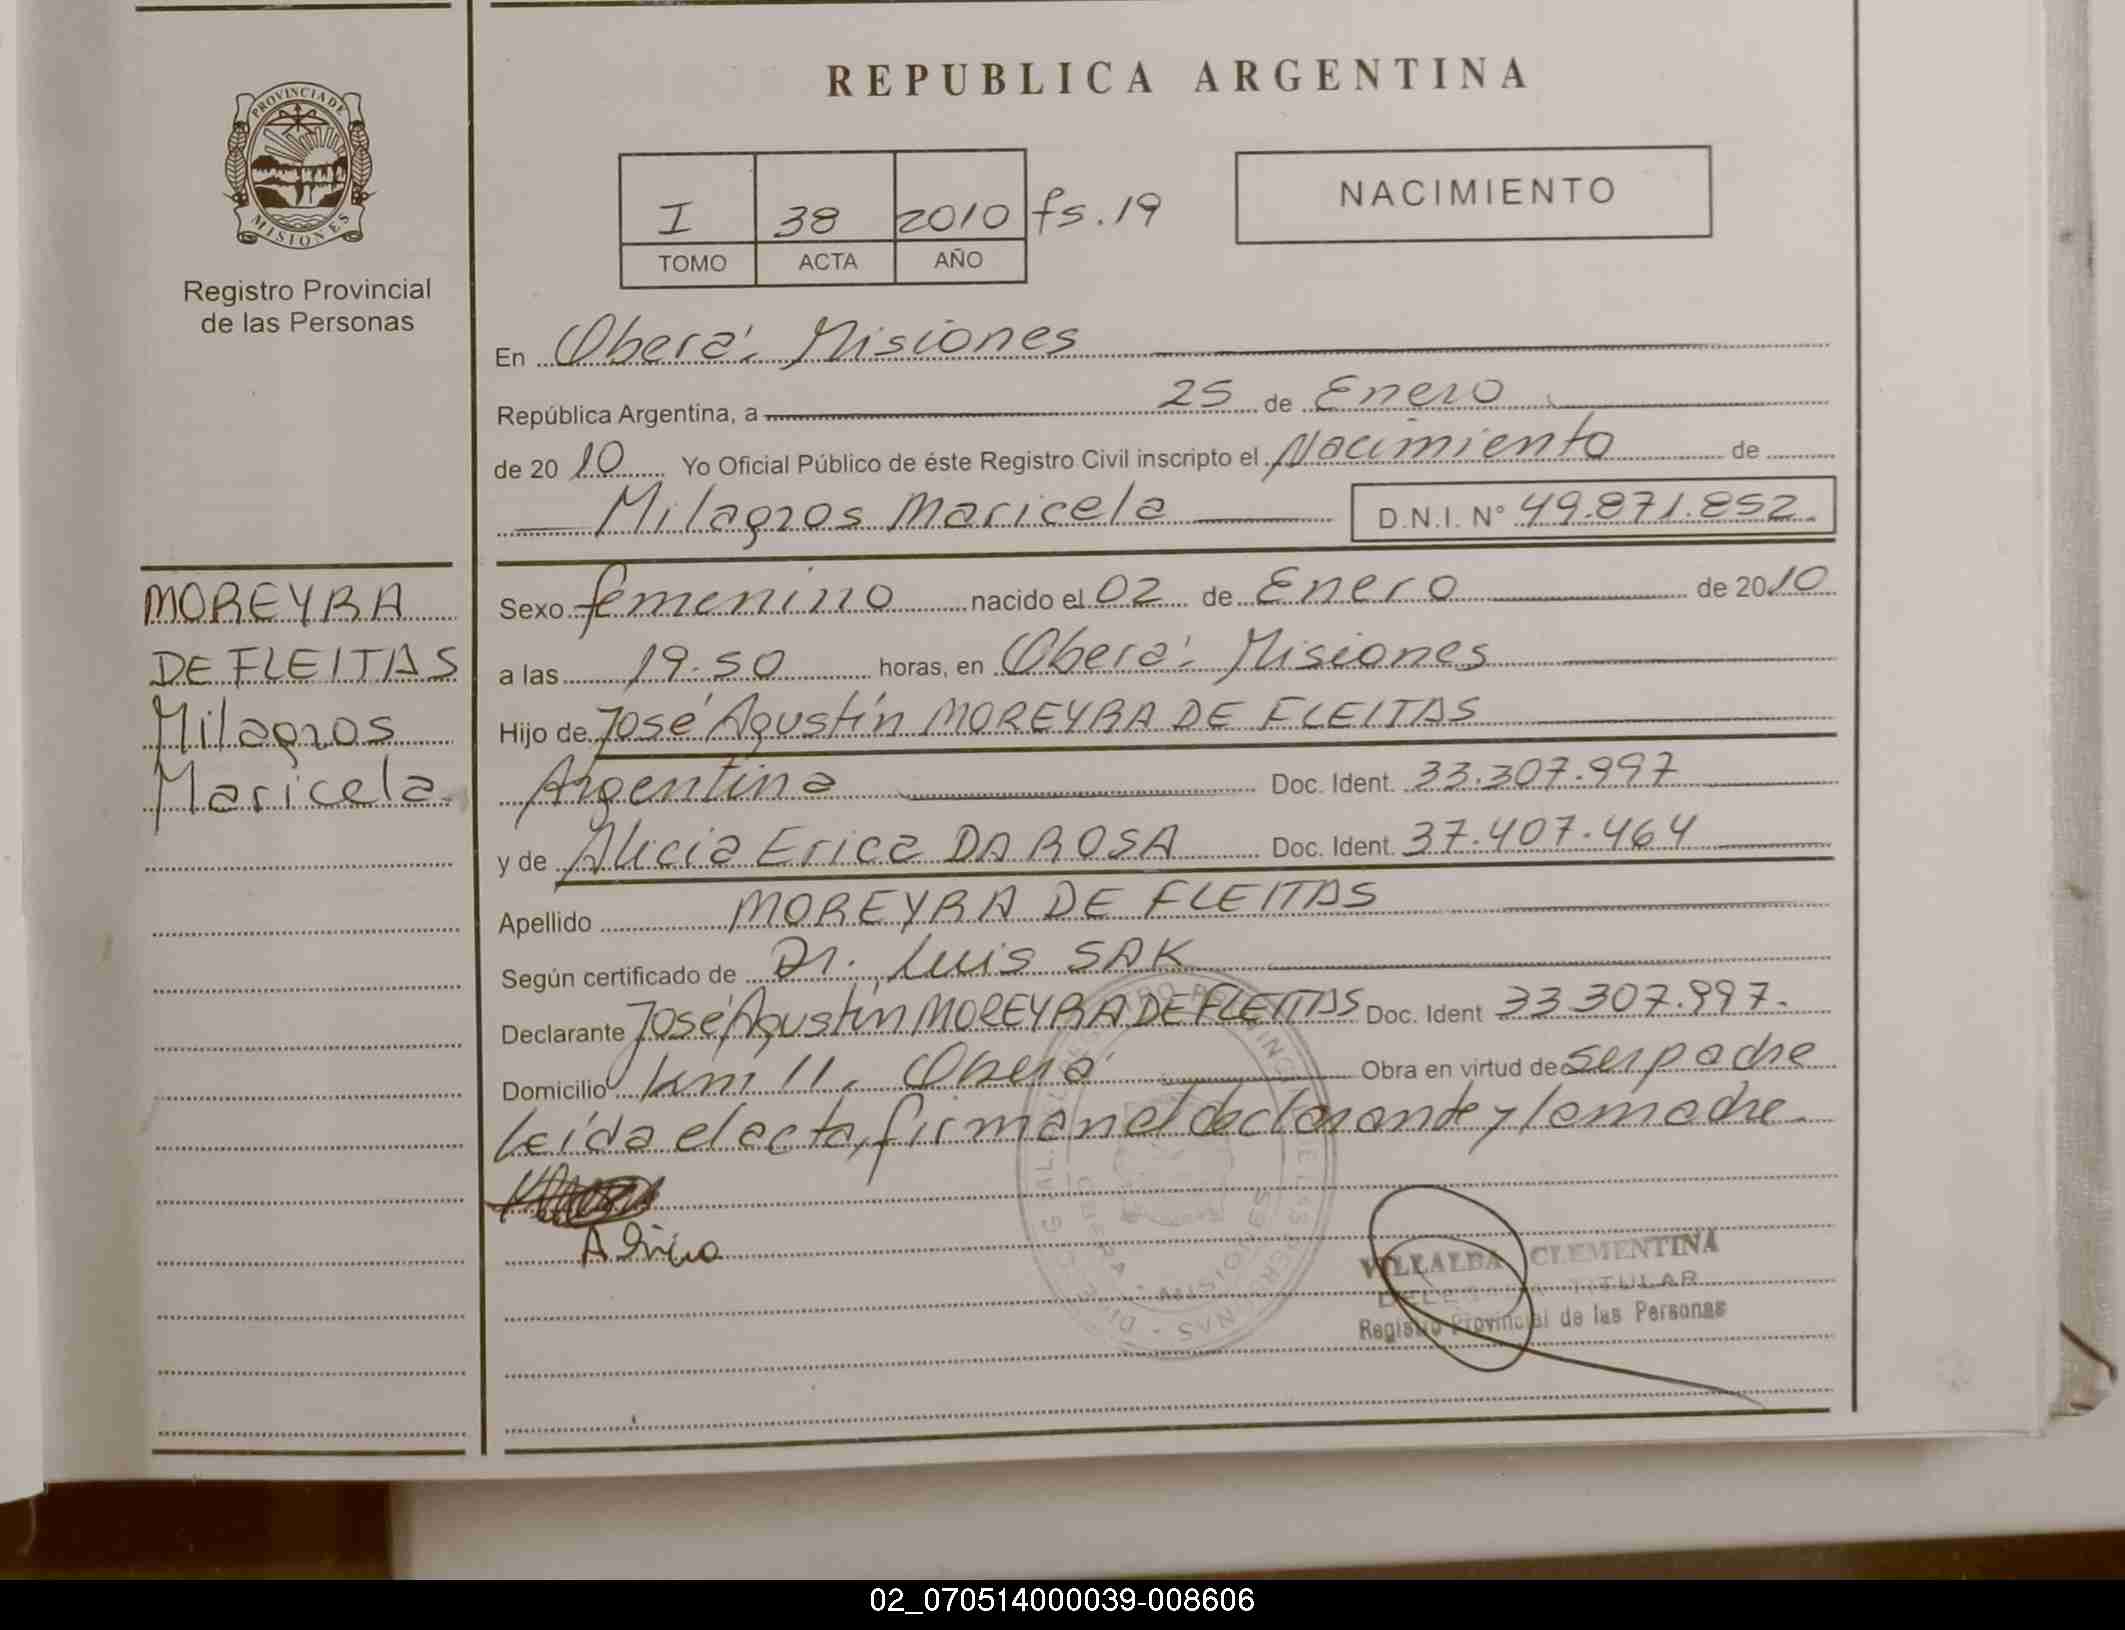 REPUBLICA ARGENTINA
PROVINCIA DE
MISIONES
Registro Provincial
de las Personas
I 38 2010 fs. 19
TOMO ACTA AÑO
NACIMIENTO
En Oberá: Misiones
República Argentina, a 25 de Enero
de 2010 Yo Oficial Público de éste Registro Civil inscripto el Nacimiento de
Milagros Maricela D.N.I. N° 49.871.852.
MOREYRA
DE FLEITAS
Milagros
Maricela
Sexo femenino nacido el 02 de Enero de 2010
a las 19.50 horas, en Oberá: Misiones
Hijo de José Agustín MOREYRA DE FLEITAS
Argentina Doc. Ident. 33.307.997
y de Alicia Erica DA ROSA Doc. Ident. 37.407.464
Apellido MOREYRA DE FLEITAS
Según certificado de Dr. Luis SAK
Declarante José Agustín MOREYRA DE FLEITAS Doc. Ident 33.307.997.
Domicilio km 11. Oberá Obra en virtud de ser padre
Leída el acta, firman el declarante y la madre.
VILLALBA CLEMENTINA
DELEGADA TITULAR
Registro Provincial de las Personas
02_070514000039-008606